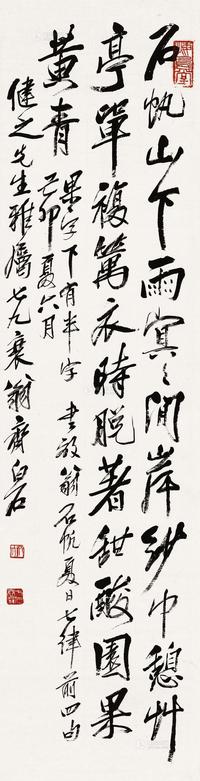 石帆山下雨冥〻閒岸紗巾憩艸
亭單複篝衣時脫著甜酸園果
黃青
果字下有半字 書放翁石帆夏日七律前四句
己卯夏六月
健之先生雅屬七九衰翁齊白石